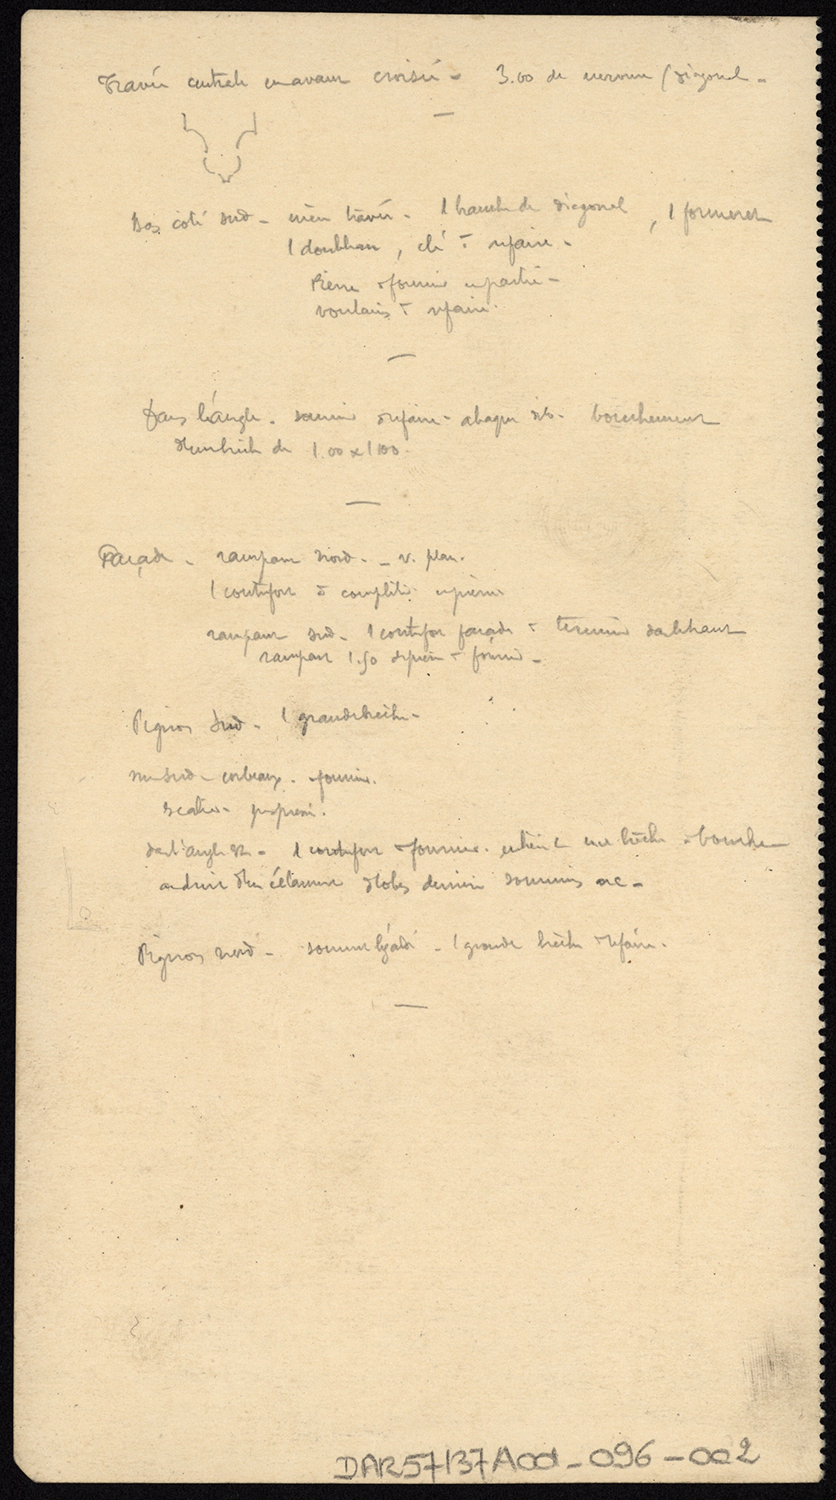 Travée centrale en avant croisée - 3.00 de nervure / diagonal -
Bas coté sud - même travée - 1 branche de diagonal, 1 formeret
1 doubleau, clé à refaire -
Pierre à fournir en partie -
voutains à refaire.
Dans l'angle. sommier à refaire - abaque id. bouchement
d'une brèche de 1.00 x 1.00.
Façade - rampant nord. - v. plan.
1 contrefort à compléter en pierre
rampant sud - 1 contrefort façade à terminer dans le haut
rampant 1.50 de pierre à fournir -
Pignon Sud - 1 grande brèche -
mur sud - corbeaux. à fournir.
dans l'angle - 1 contrefort à fournir. une brèche à boucher
derrière sommiers
Pignon nord - sommet lézardé - 1 grande brèche à refaire.
DAR57137A001-096-002